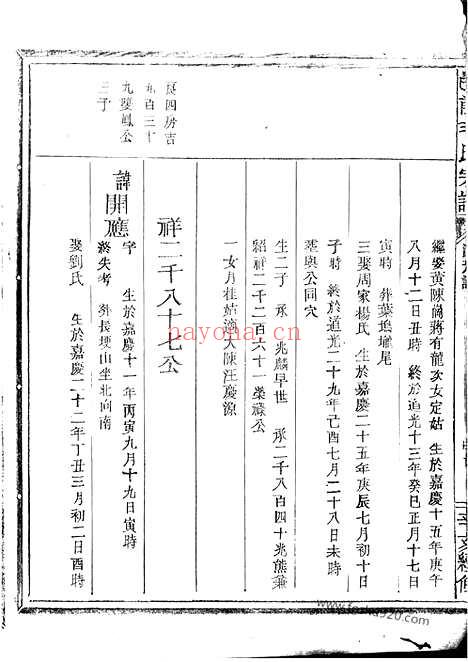 氏宗譜
辛亥續修
繼娶黃陳尙蔣有龍次女定姑 生於嘉慶十五年庚午
八月十二日丑時 終於道光十三年癸巳正月十七日
寅時 葬葉塢壠尾
三娶周家楊氏 生於嘉慶二十五年庚辰七月初十日
子時 終於道光二十九年己酉七月二十八日未時
塟與公同穴
生二子 承 兆麟早世 承二千八百四十兆熊兼
紹祥二千二百六十一榮祿公
一女月桂姑適大陳汪慶源
祥二千八十七公
長四房吉
九百三十
九鑒鳳公
三子
諱開應
字 生於嘉慶十一年丙寅九月十九日寅時
終失考 葬長埂山坐北向南
娶劉氏 生於嘉慶二十二年丁丑三月初二日酉時
hayona.com